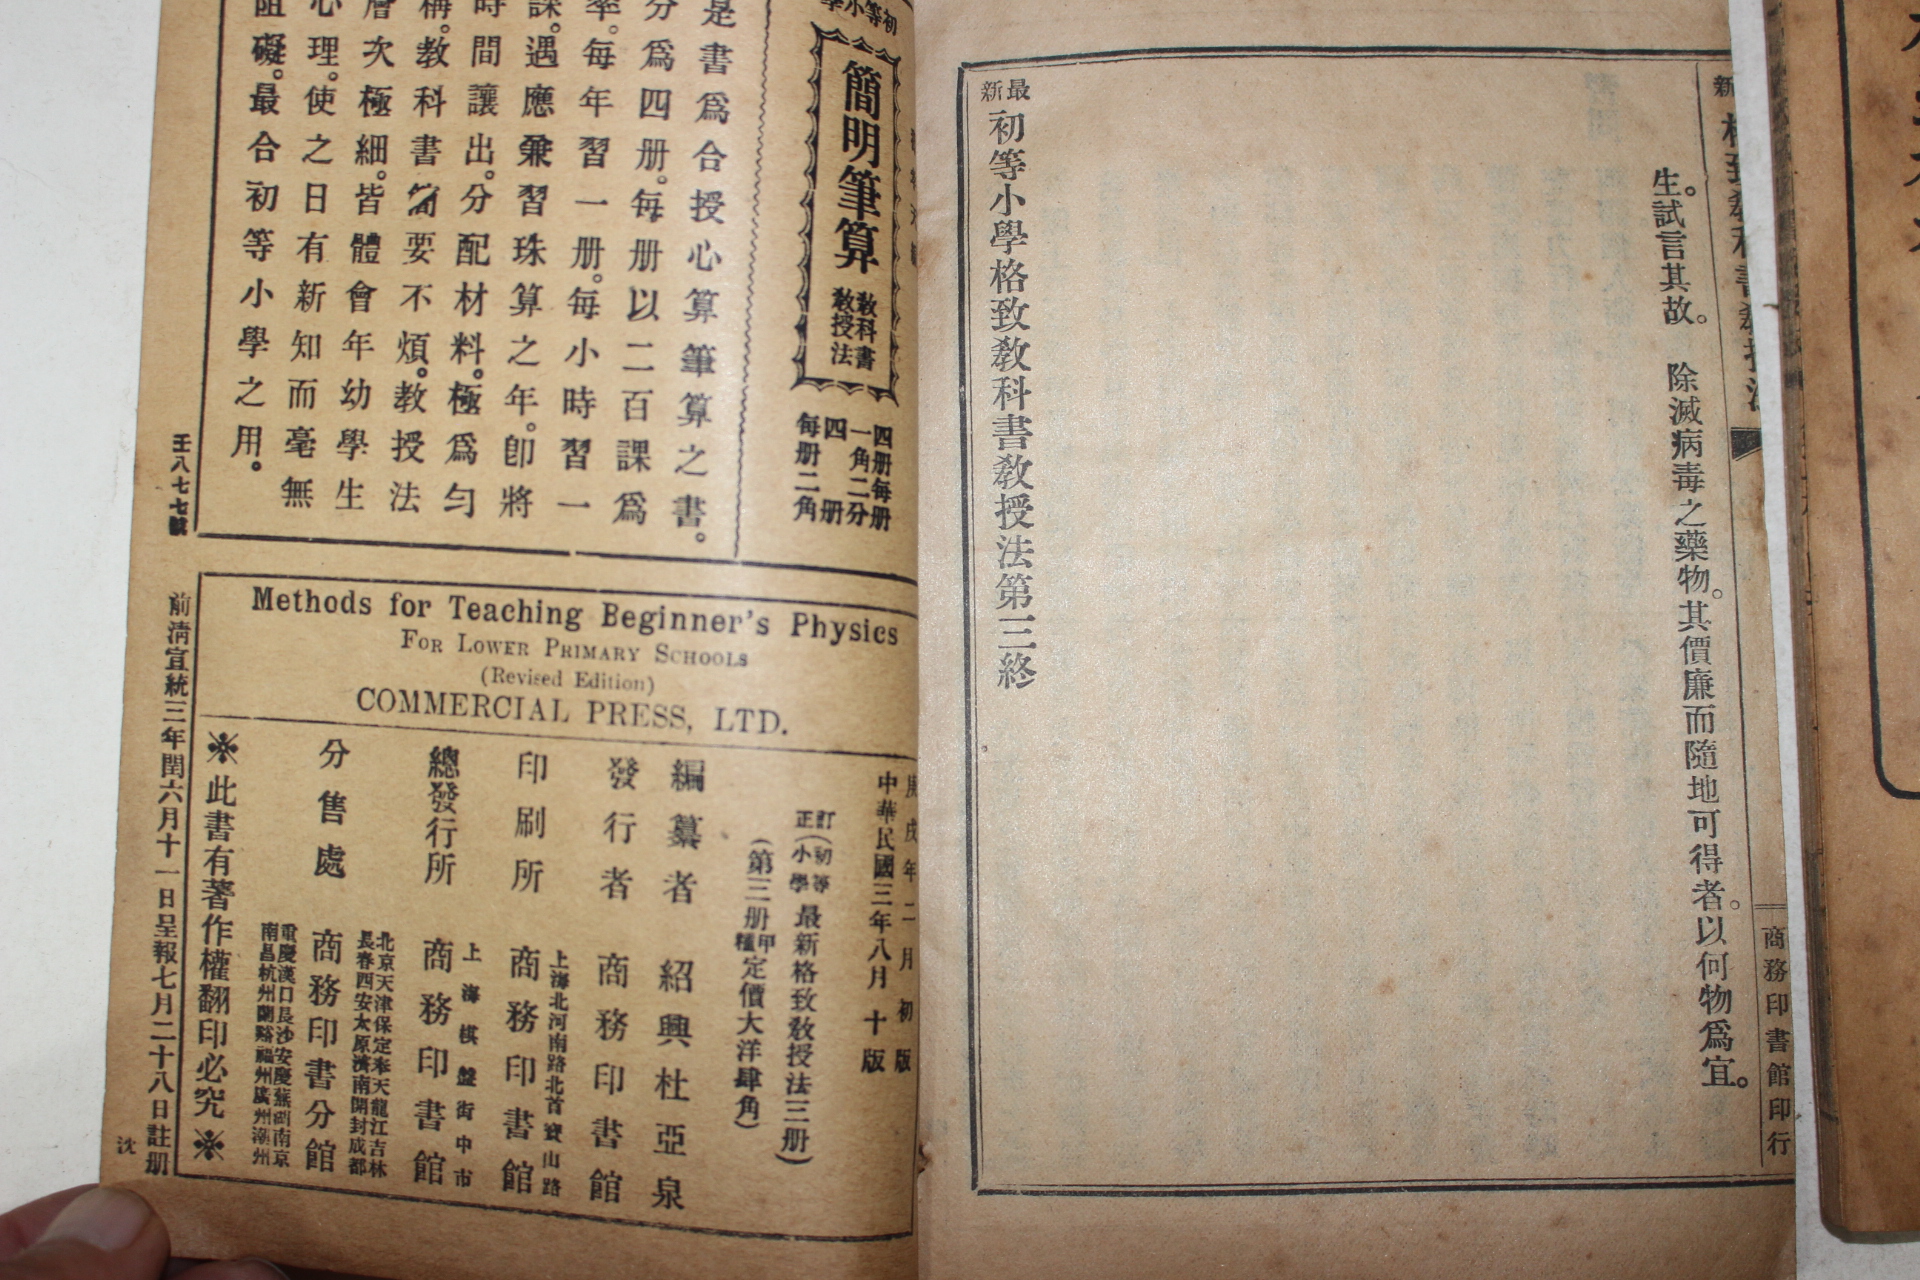 生。試言其故。　除滅病毒之藥物。其價廉而隨地可得者。以何物爲宜。
最新初等小學格致敎科書敎授法第三終
商務印書館印行
初等小學
簡明筆算
敎科書
敎授法
四册每册一角二分
四册每册二角
是書爲合授心算筆算之書。
分爲四册。每册以二百課爲
率。每年習一册。每小時習一
課。遇應兼習珠算之年。卽將
時間讓出。分配材料。極爲勻
稱。敎科書簡要不煩。敎授法
層次極細。皆體會年幼學生
心理。使之日有新知而毫無
阻礙。最合初等小學之用。
壬八七七號
Methods for Teaching Beginner's Physics
FOR LOWER PRIMARY SCHOOLS
(Revised Edition)
COMMERCIAL PRESS, LTD.
庚戌年二月初版
中華民國三年八月十版
訂正(初等小學最新格致敎授法三册)
(第三册甲種定價大洋肆角)
編纂者　紹興杜亞泉
發行者　商務印書館
上海北河南路北首寶山路
印刷所　商務印書館
上海棋盤街中市
總發行所　商務印書館
北京天津保定奉天龍江吉林
長春西安太原濟南開封成都
分售處　商務印書分館
重慶漢口長沙安慶蕪湖南京
南昌杭州蘭谿福州廣州潮州
※此書有著作權翻印必究※
前淸宣統三年閏六月十一日呈報七月二十八日註册
沈